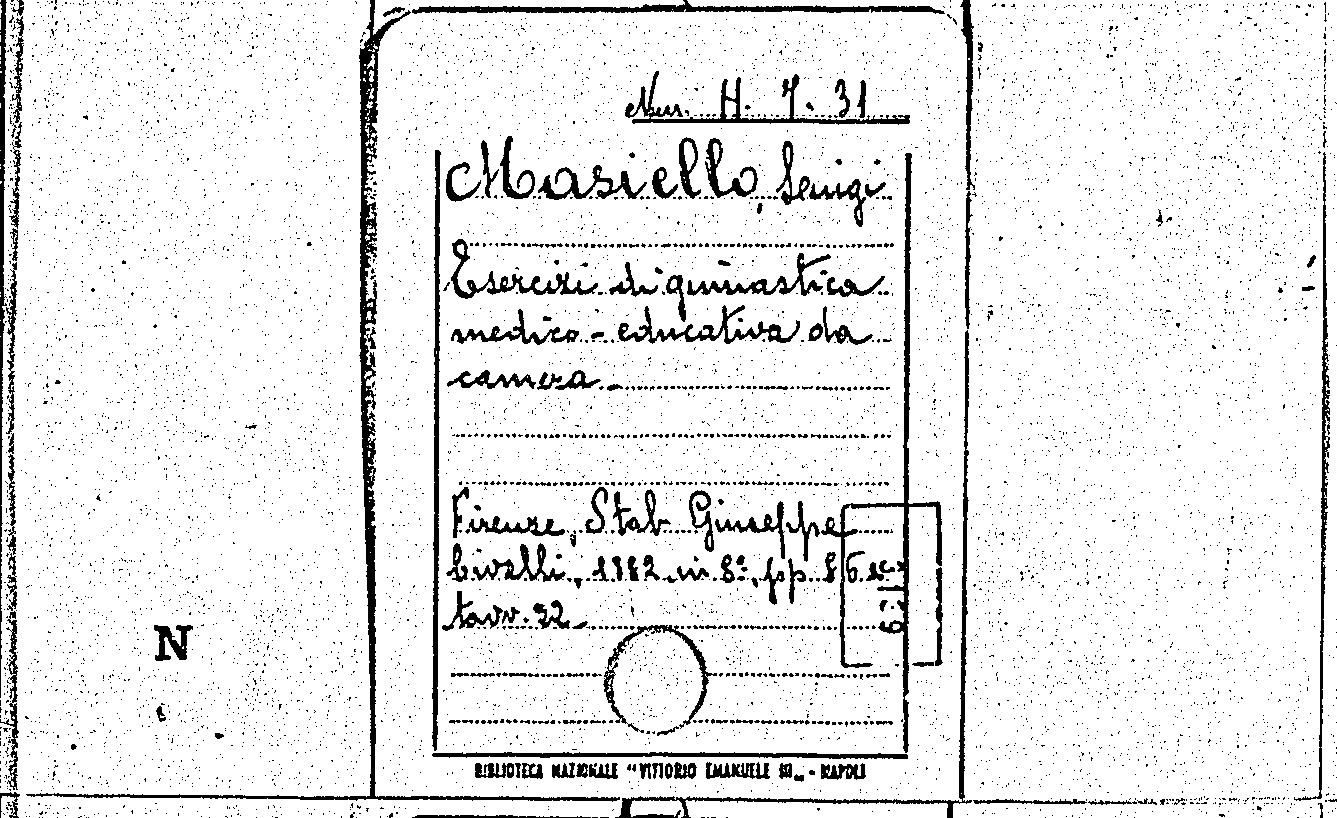 Nun. H. 7. 31
Masiello, Luigi
Esercizi di ginnastica
medico-educativa da
camera.
Firenze, Stab Giuseppe
Civelli, 1882 in 8°, pp. 86 e
tavv. 22.
N
BIBLIOTECA NAZIONALE "VITTORIO EMANUELE III" - NAPOLI